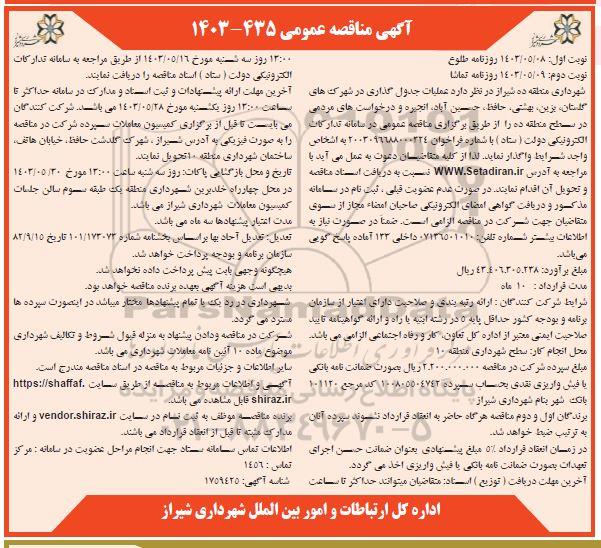 آگهی مناقصه عمومی ۴۳۵-۱۴۰۳
نوبت اول: ۱۴۰۳/۰۵/۰۸ روزنامه طلوع
نوبت دوم: ۱۴۰۳/۰۵/۰۹ روزنامه تماشا
شهرداری منطقه ده شیراز در نظر دارد عملیات جدول گذاری در شهرک های
گلستان، بزین، بهشتی، حافظ، حسین آباد، انجیره و درخواست های مردمی
در سطح منطقه ده را از طریق برگزاری مناقصه عمومی در سامانه تدارکات
الکترونیکی دولت ( ستاد ) با شماره فراخوان ۲۰۰۳۰۹۶۶۸۸۰۰۰۲۲۴ به اشخاص
واجد شرایط واگذار نماید. لذا از کلیه متقاضیان دعوت به عمل می آید با
مراجعه به آدرس WWW.Setadiran.ir نسبت به دریافت اسناد مناقصه
و تحویل آن اقدام نمایند. در صورت عدم عضویت قبلی ، ثبت نام در سامانه
مذکور و دریافت گواهی امضای الکترونیکی صاحبان امضاء مجاز از سوی
متقاضیان جهت شرکت در مناقصه الزامی است. ضمناً در صورت نیاز به
اطلاعات بیشتر شماره تلفن: ۰۷۱۳۶۵۰۱۰۱۰ داخلی ۱۳۳ آماده پاسخ گویی
می‌باشد.
مبلغ برآورد: ۴۳.۴۰۶.۳۰۵.۲۳۸ ریال
مدت قرارداد : ۱۰ ماه
شرایط شرکت کنندگان : ارائه رتبه بندی و صلاحیت دارای اعتبار از سازمان
برنامه و بودجه کشور حداقل پایه ۵ در رشته ابنیه یا راه و ارائه گواهینامه تایید
صلاحیت ایمنی معتبر از اداره کل تعاون، کار و رفاه اجتماعی الزامی می باشد.
محل انجام کار: سطح شهرداری منطقه ۱۰
مبلغ سپرده شرکت در مناقصه ۲.۲۰۰.۰۰۰.۰۰۰ ریال بصورت ضمانت نامه بانکی
یا فیش واریزی نقدی بحساب سپرده ۱۰۰۸۰۵۵۰۴۷۴۲ کد مرجع ۱۰۱۱۲۰
بانک شهر بنام شهرداری شیراز
برندگان اول و دوم مناقصه هرگاه حاضر به انعقاد قرارداد نشوند سپرده آنان
به ترتیب ضبط خواهد شد.
در زمان انعقاد قرارداد ۵% مبلغ پیشنهادی بعنوان ضمانت حسن اجرای
تعهدات بصورت ضمانت نامه بانکی یا فیش واریزی اخذ می گردد.
آخرین مهلت دریافت ( توزیع ) اسناد: متقاضیان میتوانند حداکثر تا ساعت
۱۳:۰۰ روز سه شنبه مورخ ۱۴۰۳/۰۵/۱۶ از طریق مراجعه به سامانه تدارکات
الکترونیکی دولت ( ستاد ) اسناد مناقصه را دریافت نمایند.
آخرین مهلت ارائه پیشنهادات و ثبت اسناد و مدارک در سامانه حداکثر تا
ساعت ۱۳:۰۰ روز یکشنبه مورخ ۱۴۰۳/۰۵/۲۸ می باشد. شرکت کنندگان
می بایست تا قبل از برگزاری کمیسیون معاملات سپرده شرکت در مناقصه
را به صورت فیزیکی به آدرس شیراز ، شهرک گلدشت حافظ، خیابان هاتف،
ساختمان شهرداری منطقه ۱۰ تحویل نمایند.
تاریخ و محل بازگشایی پاکات: روز سه شنبه ساعت ۱۳:۰۰ مورخ ۱۴۰۳/۰۵/۳۰
در محل چهارراه خلدبرین شهرداری منطقه یک طبقه سوم سالن جلسات
کمیسیون معاملات شهرداری شیراز می باشد.
مدت اعتبار پیشنهادها سه ماه می باشد.
تعدیل: تعدیل آحاد بها براساس بخشنامه شماره ۱۰۱/۱۷۳۰۷۳ تاریخ ۸۲/۹/۱۵
سازمان برنامه و بودجه پرداخت خواهد شد.
هیچگونه وجهی بابت پیش پرداخت داده نخواهد شد.
بدیهی است هزینه آگهی بعهده برنده مناقصه خواهد بود.
شهرداری در رد یک یا تمام پیشنهادها مختار میباشد در اینصورت سپرده ها
مسترد می گردد.
شرکت در مناقصه و دادن پیشنهاد به منزله قبول شروط و تکالیف شهرداری
موضوع ماده ۱۰ آئین نامه معاملات شهرداری می باشد.
سایر اطلاعات و جزئیات مربوط به مناقصه در اسناد مناقصه مندرج است.
آگهی و اطلاعات مربوط به مناقصه از طریق سایت https://shaffaf.
shiraz.ir قابل مشاهده می باشد.
برنده مناقصه موظف به ثبت نام در سایت vendor.shiraz.ir و ارائه
مدارک مثبته تا قبل از انعقاد قرارداد می باشند.
اطلاعات تماس سامانه ستاد جهت انجام مراحل عضویت در سامانه : مرکز
تماس : ۱۴۵۶
شناسه آگهی: ۱۷۵۹۴۲۵
اداره کل ارتباطات و امور بین الملل شهرداری شیراز